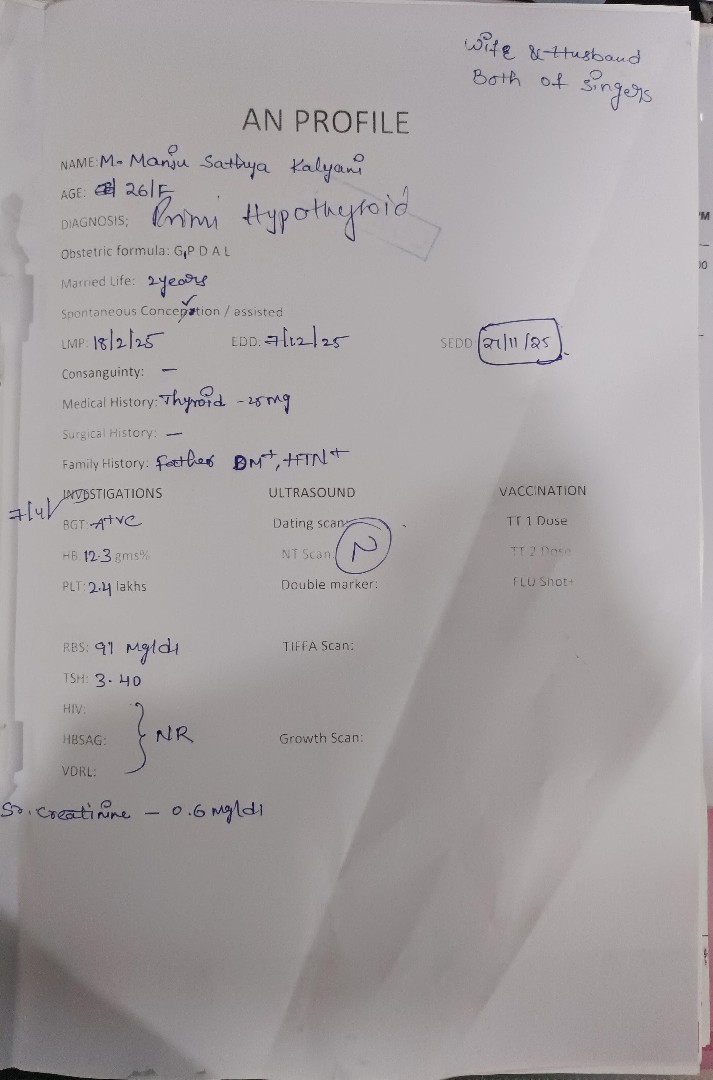 Wife & Husband
Both of singers
AN PROFILE
NAME: M. Manju Sathya Kalyani
AGE: 26/F
DIAGNOSIS: Primi Hypothyroid
Obstetric formula: G1P D A L
Married Life: 2years
Spontaneous Conception / assisted
LMP: 18/2/25 EDD: 7/12/25 SEDD: 27/11/25
Consanguinty: —
Medical History: Thyroid - 25mg
Surgical History: —
Family History: father DM+, HTN+
7/4/ INVESTIGATIONS ULTRASOUND VACCINATION
BGT: A+ve Dating scan: TT 1 Dose
HB: 12.3 gms% NT Scan: N TT 2 Dose
PLT: 2.4 lakhs Double marker: FLU Shot-
RBS: 91 mg/dl TIFFA Scan:
TSH: 3.40
HIV:
HBSAG: } NR Growth Scan:
VDRL:
Sr. creatinine — 0.6 mg/dl